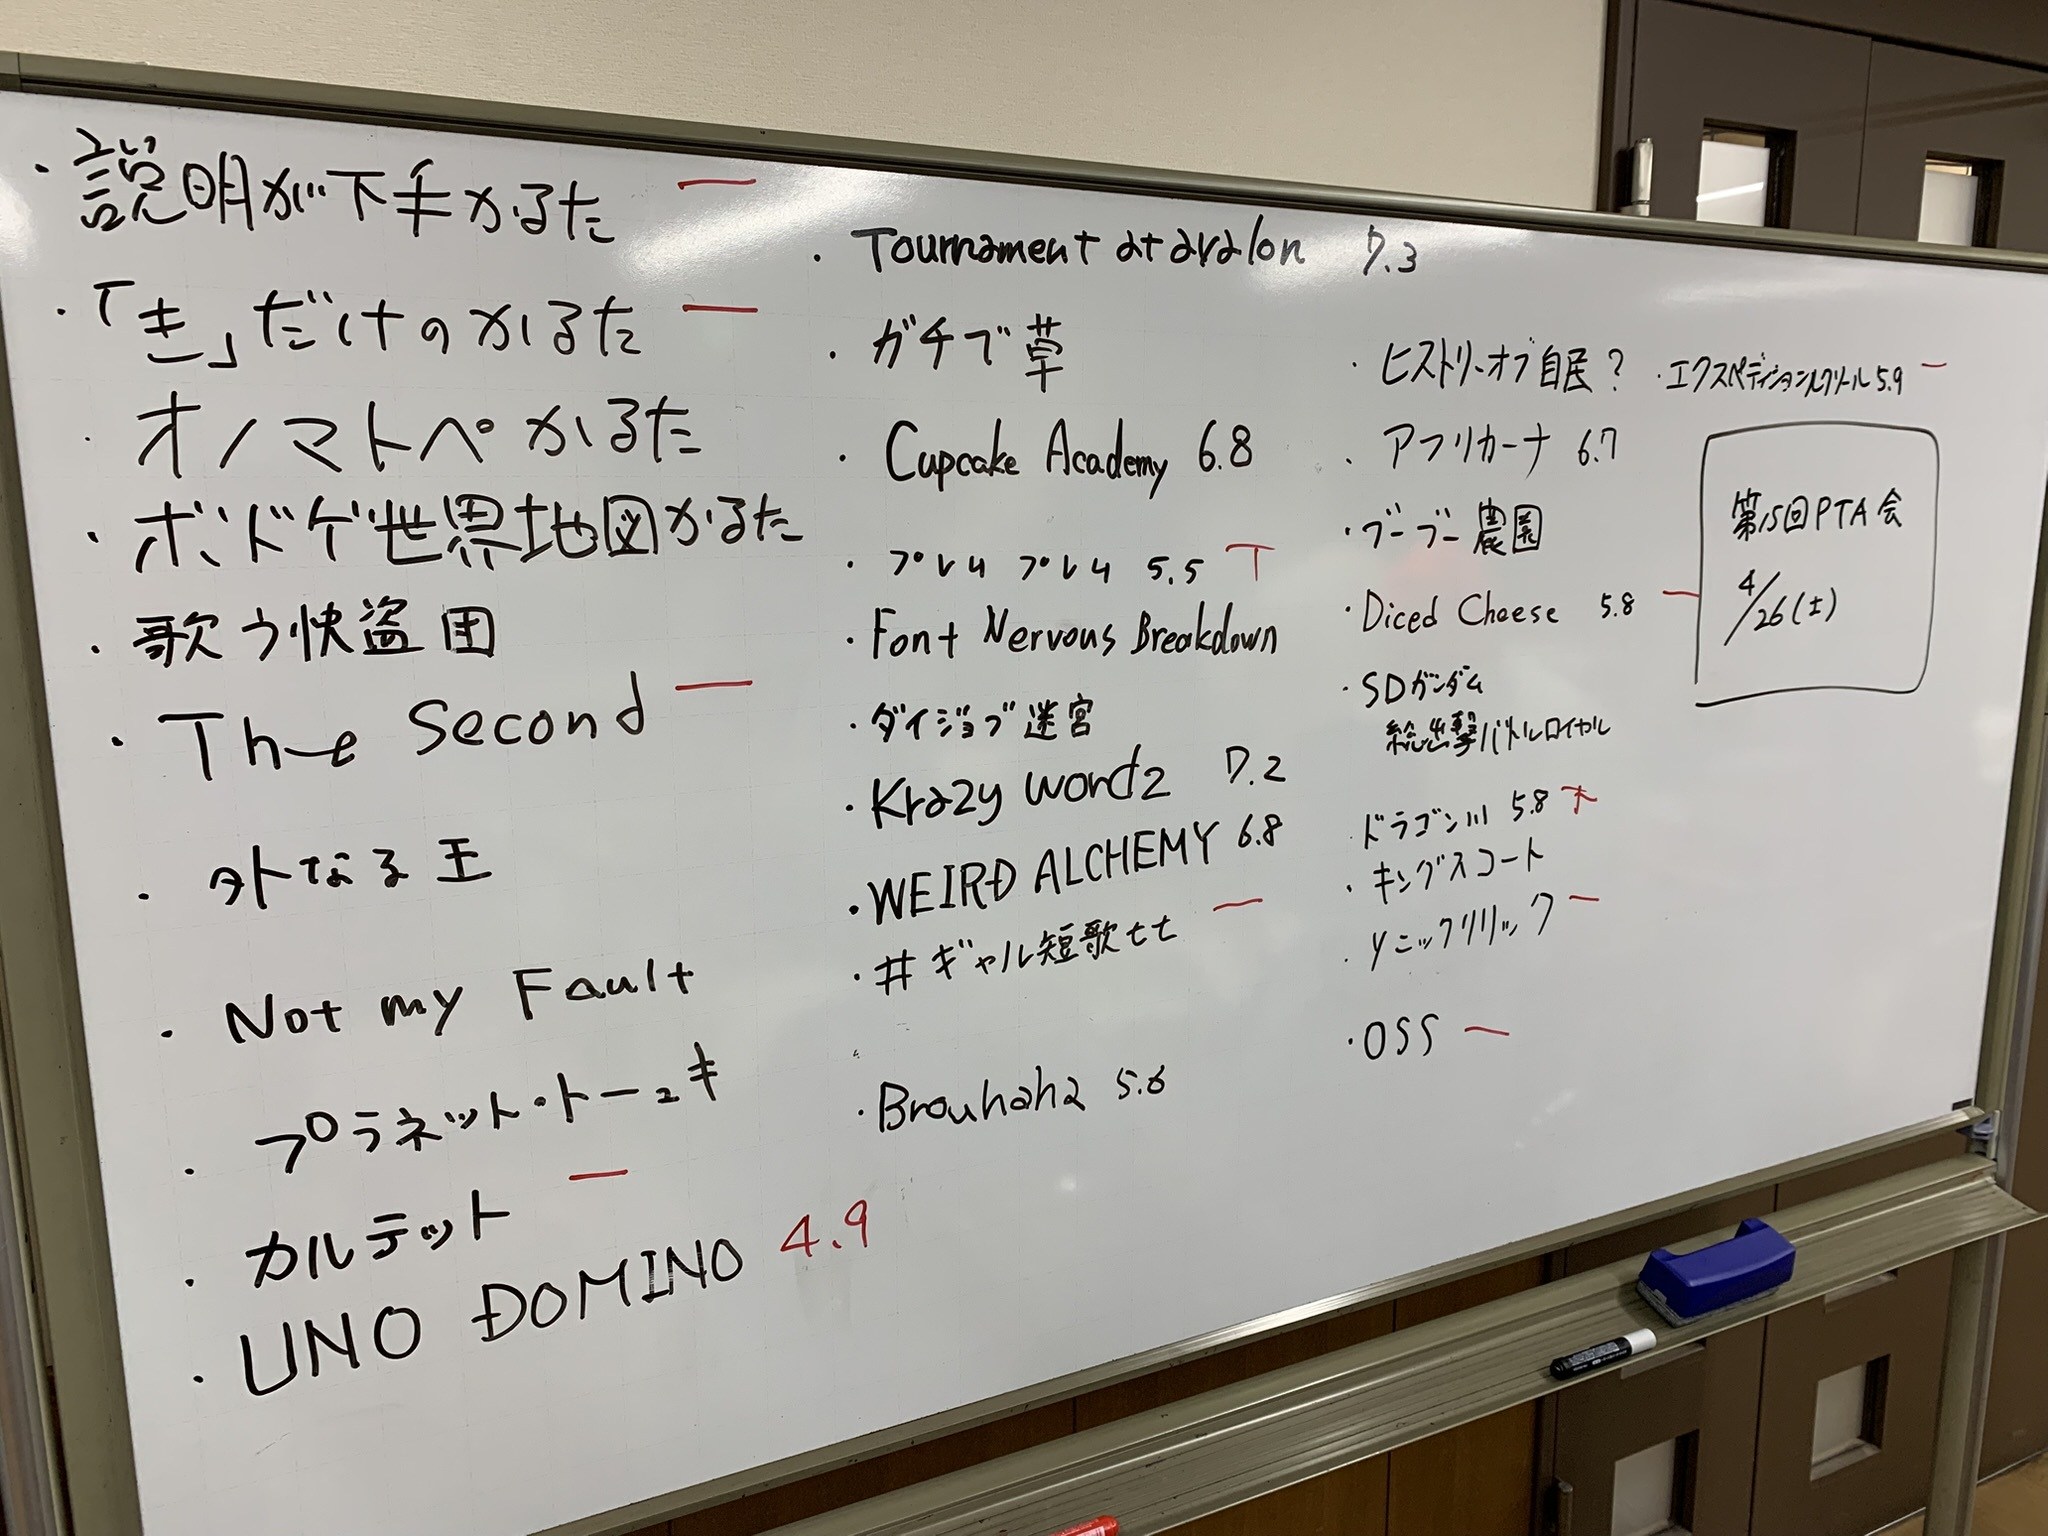 ・説明が下手かるた 一
・「き」だけのかるた 一
・オノマトペかるた
・ボドゲ世界地図かるた
・歌う快盗団
・The Second 一
・外なる王
・Not my Fault
・プラネット・トーュキ
・カルテット 一
・UNO DOMINO 4.9
・Tournament at avalon 7.3
・ガチブ草
・Cupcake Academy 6.8
・プレム プレム 5.5 T
・Font Nervous Breakdown
・ダイジョブ迷宮
・Krazy Wordz 7.2
・WEIRD ALCHEMY 6.8
・#ギャル短歌tt 一
・Brouhaha 5.6
・ヒストリーオブ自民?
・アフリカーナ 6.7
・ブーブー農園
・Diced Cheese 5.8 一
・SDガンダム
総出撃バトルロイヤル
・ドラゴン川 5.8
・キングスコート
・リニックリリック 一
・OSS 一
・エクスペディションルクソール 5.9 一
第15回PTA会
4/26(土)